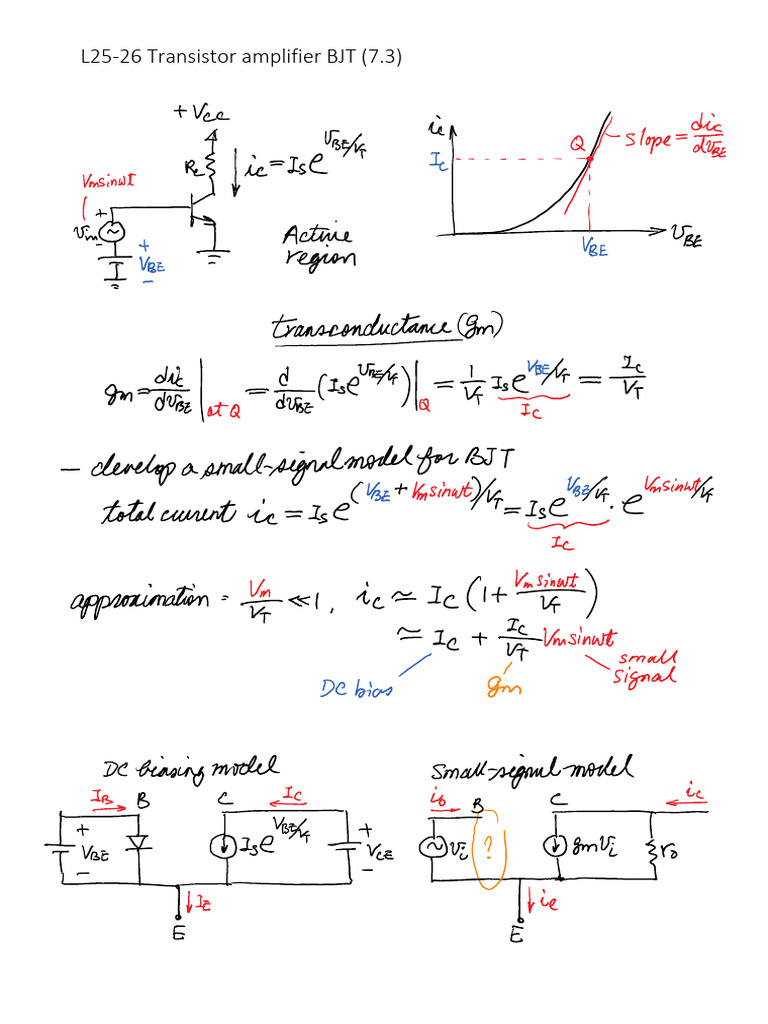 L25-26 Transistor amplifier BJT (7.3)
+Vcc
Rc
ic = Is e^(vBE/VT)
Vm sinωt
+
vin
-
+
VBE
-
Active
region
ic
Ic
Q
slope = dic/dvBE
VBE
vBE
transconductance (gm)
gm = dic/dvBE | at Q = d/dvBE (Is e^(vBE/VT)) | Q = 1/VT Is e^(VBE/VT) = Ic/VT
Ic
- develop a small-signal model for BJT
total current ic = Is e^((VBE + Vm sinωt)/VT) = Is e^(VBE/VT) · e^(Vm sinωt/VT)
Ic
approximation = Vm/VT ≪ 1, ic ≃ Ic (1 + Vm sinωt/VT)
≃ Ic + Ic/VT Vm sinωt
DC bias
gm
small
signal
DC biasing model
Small-signal model
IB
B
C
Ic
+
VBE
-
Is e^(VBE/VT)
+
VCE
-
IE
E
ib
B
C
ic
vi
?
gm vi
ro
ie
E